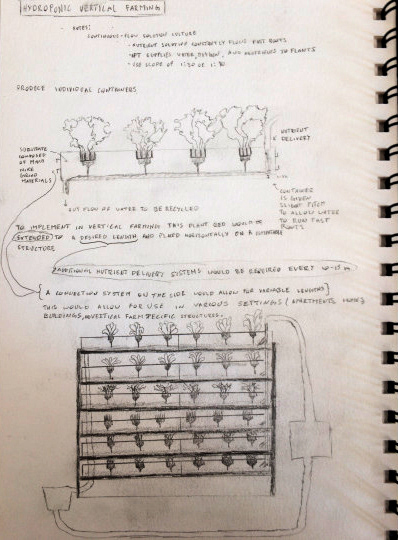 HYDROPONIC VERTICAL FARMING
NOTES:
CONTINUOUS-FLOW SOLUTION CULTURE
- NUTRIENT SOLUTION CONSTANTLY FLOWS PAST ROOTS
- NFT SUPPLIES WATER, OXYGEN, AND NUTRIENTS TO PLANTS
- USE SLOPE OF 1:30 OR 1:40
PRODUCE INDIVIDUAL CONTAINERS
NUTRIENT
DELIVERY
SUBSTRATE
COMPOSED OF MANY
MATERIALS
CONTAINER
IS GIVEN
SLIGHT PITCH
TO ALLOW WATER
TO RUN PAST
ROOTS
OUT FLOW OF WATER TO BE RECYCLED
TO IMPLEMENT IN VERTICAL FARMING THIS PLANT BED WOULD BE
EXTENDED TO A DESIRED LENGTH AND PLACED HORIZONTALLY ON A
STRUCTURE
ADDITIONAL NUTRIENT DELIVERY SYSTEMS WOULD BE REQUIRED EVERY 10-15 M.
A CONNECTION SYSTEM ON THE SIDE WOULD ALLOW FOR VARIABLE LENGTHS
THIS WOULD ALLOW FOR USE IN VARIOUS SETTINGS (APARTMENTS, HOMES
BUILDINGS, VERTICAL FARM SPECIFIC STRUCTURES.